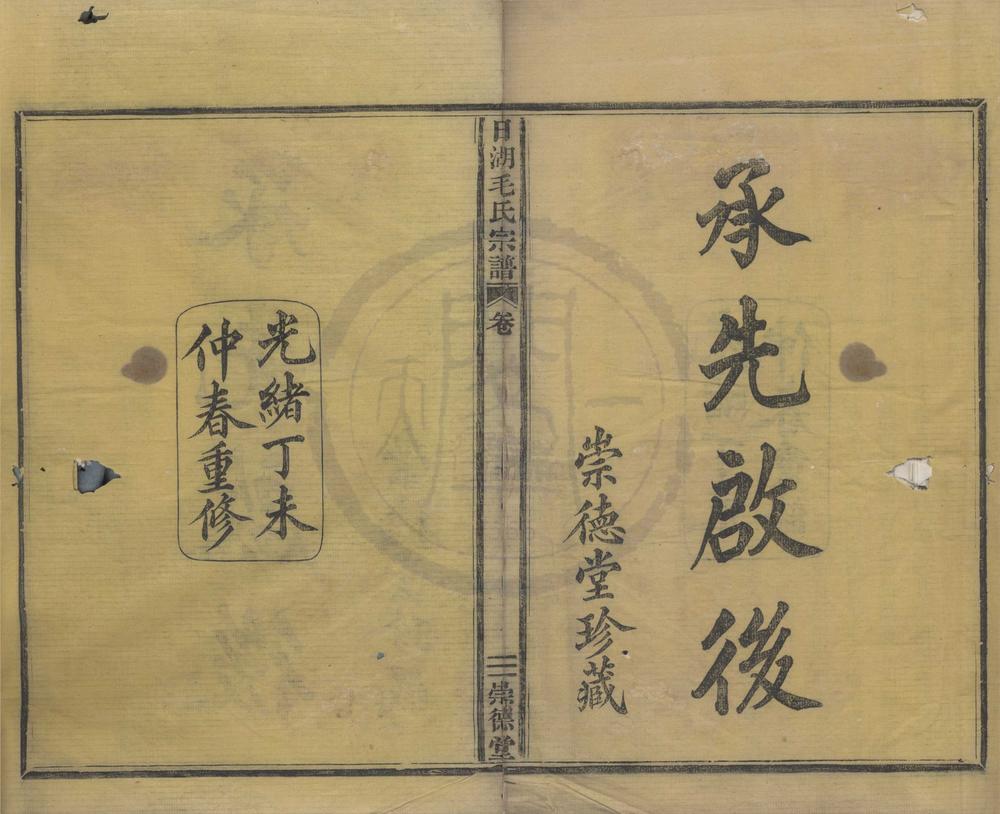 承先啟後
崇德堂珍藏
日湖毛氏宗譜
卷
三
崇德堂
光緒丁未
仲春重修